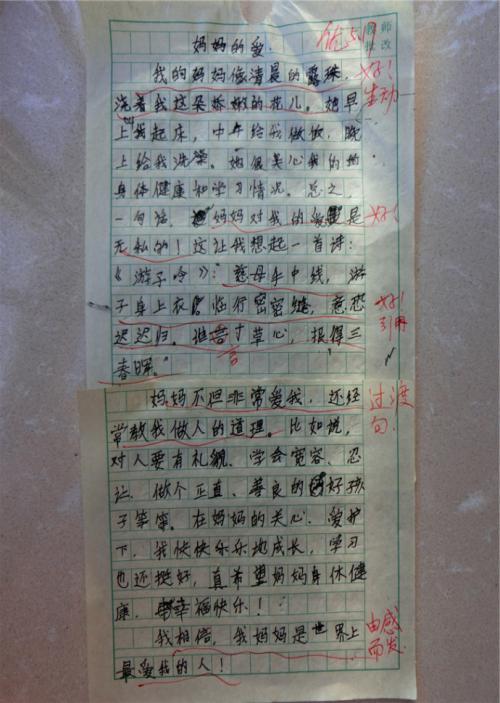 妈妈的爱.
优5月
教师
批改
我的妈妈像清晨的露珠,
好!
生动
浇着我这朵娇嫩的花儿。她早
上叫我起床,中午给我做饭,晚
上给我洗澡。她很关心我的的
身体健康和学习情况。总之,
一句话,妈妈对我的爱是
好!
无私的!这让我想起一首诗:
《游子吟》:慈母手中线,游
子身上衣。临行密密缝,意恐
好!
引用
迟迟归。谁言寸草心,报得三
言
春晖。"
妈妈不但非常爱我,还经
过渡
句.
常教我做人的道理。比如说,
对人要有礼貌、学会宽容、忍
让、做个正直、善良的好孩
子等等。在妈妈的关心、爱护
下,我快快乐乐地成长,学习
也还挺好,真希望妈妈身体健
康、幸福快乐!
由感
而发
我相信,我妈妈是世界上
最爱我的人!